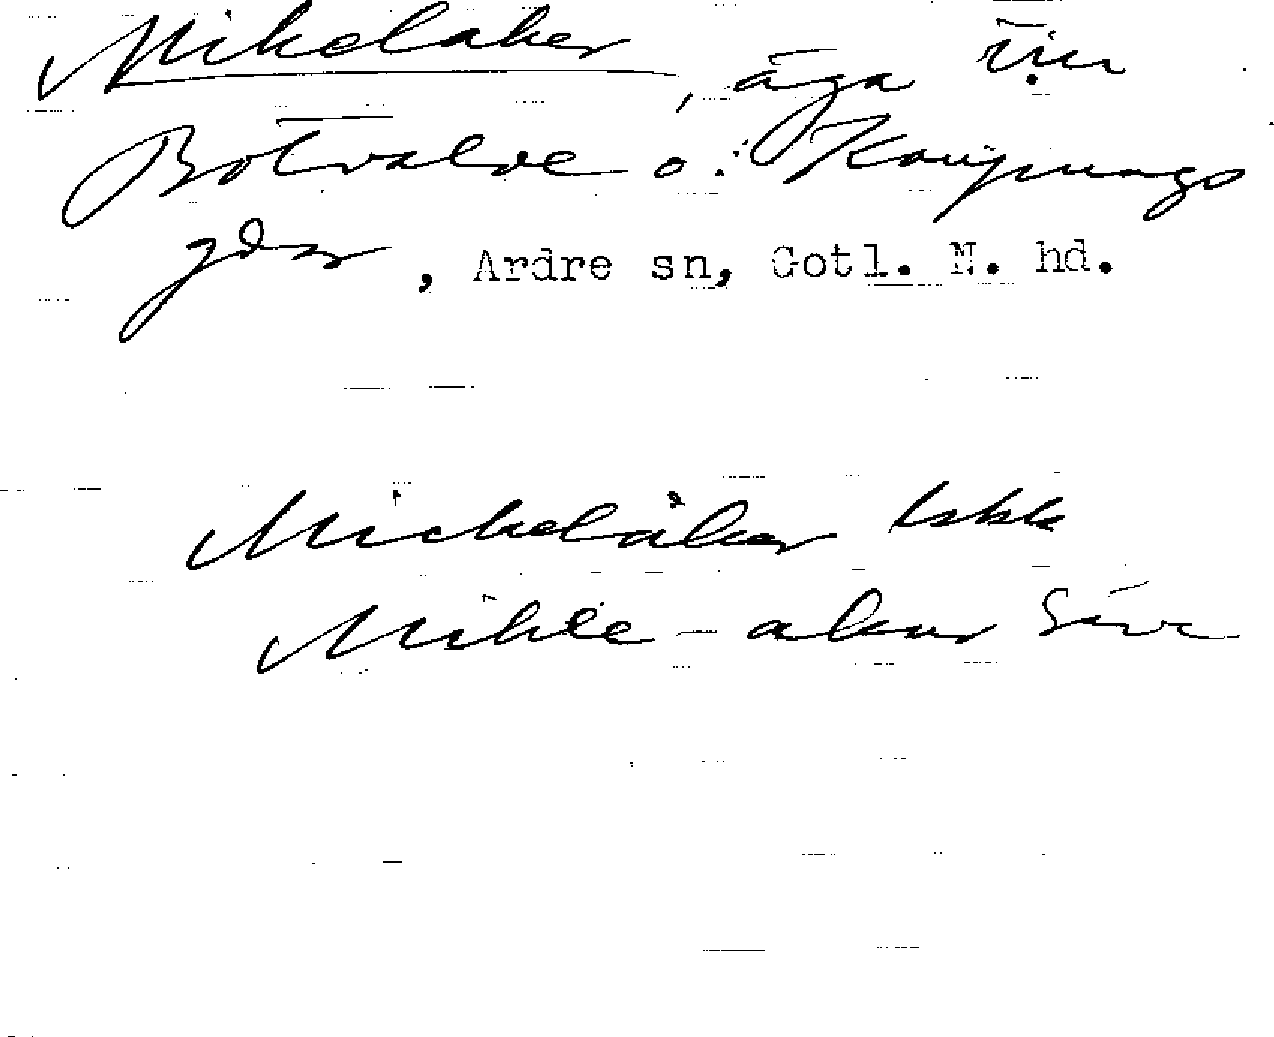 Mikelåker, äga till
Botvalde o. Kaupungs
gdar, Ardre sn, Gotl. N. hd.
Mickelåker Lskk
Mikle-akar Säve